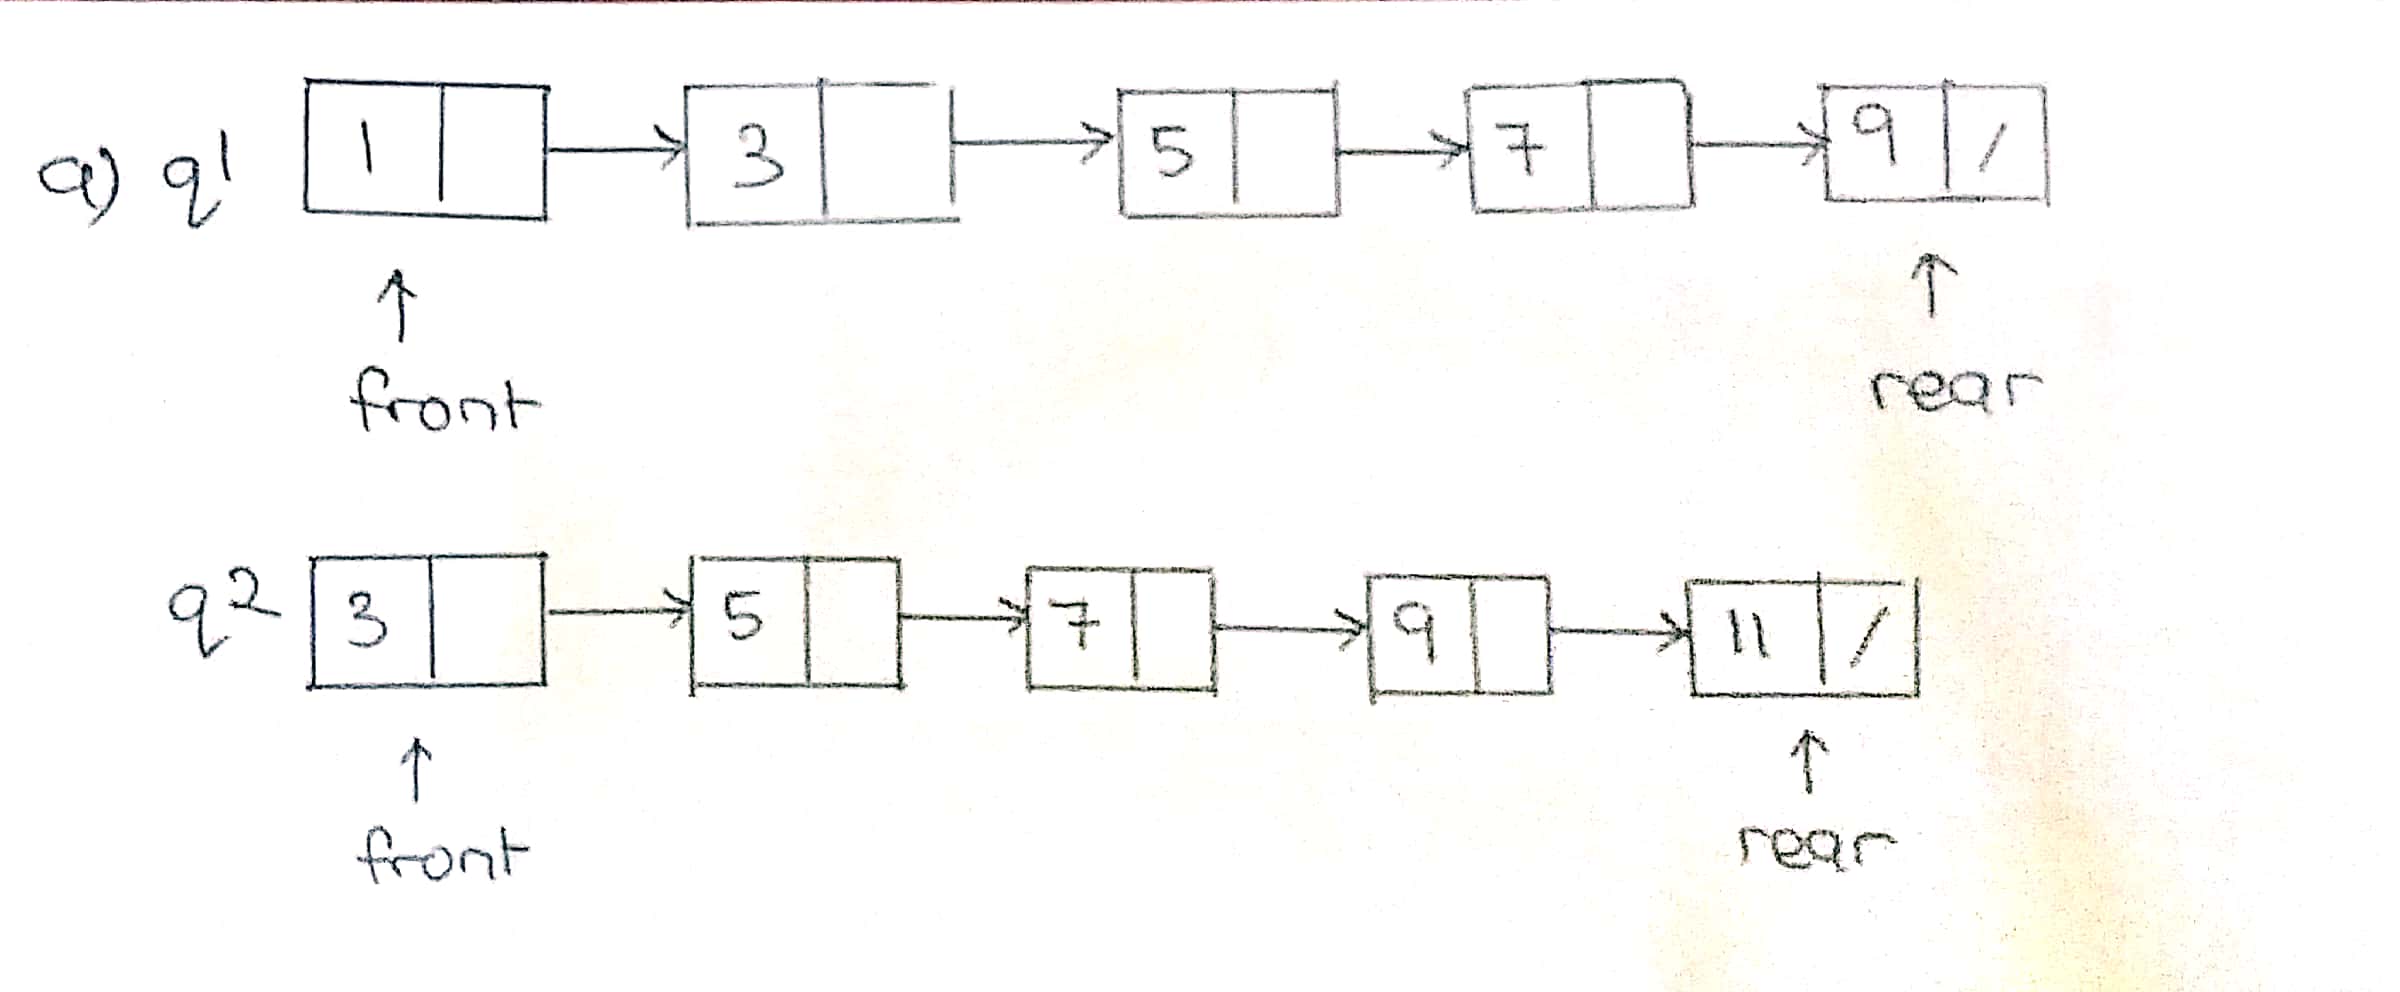 a) q1 1 3 5 7 9 /
front rear
q2 3 5 7 9 11 /
front rear